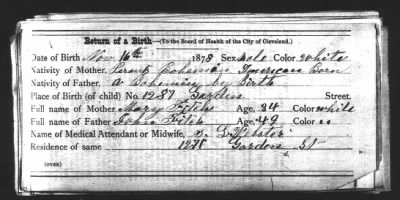 Return of a Birth—(To the Board of Health of the City of Cleveland.)
Date of Birth Nov 16th 1878 Sex male Color white
Nativity of Mother, Bohemian American Born
Nativity of Father, a Bohemian by Birth
Place of Birth (of child) No. 1287 Garden Street.
Full name of Mother Mary Age, 34 Color white
Full name of Father John Age, 49 Color
Name of Medical Attendant or Midwife,
Residence of same 1271 Garden St
(OVER)